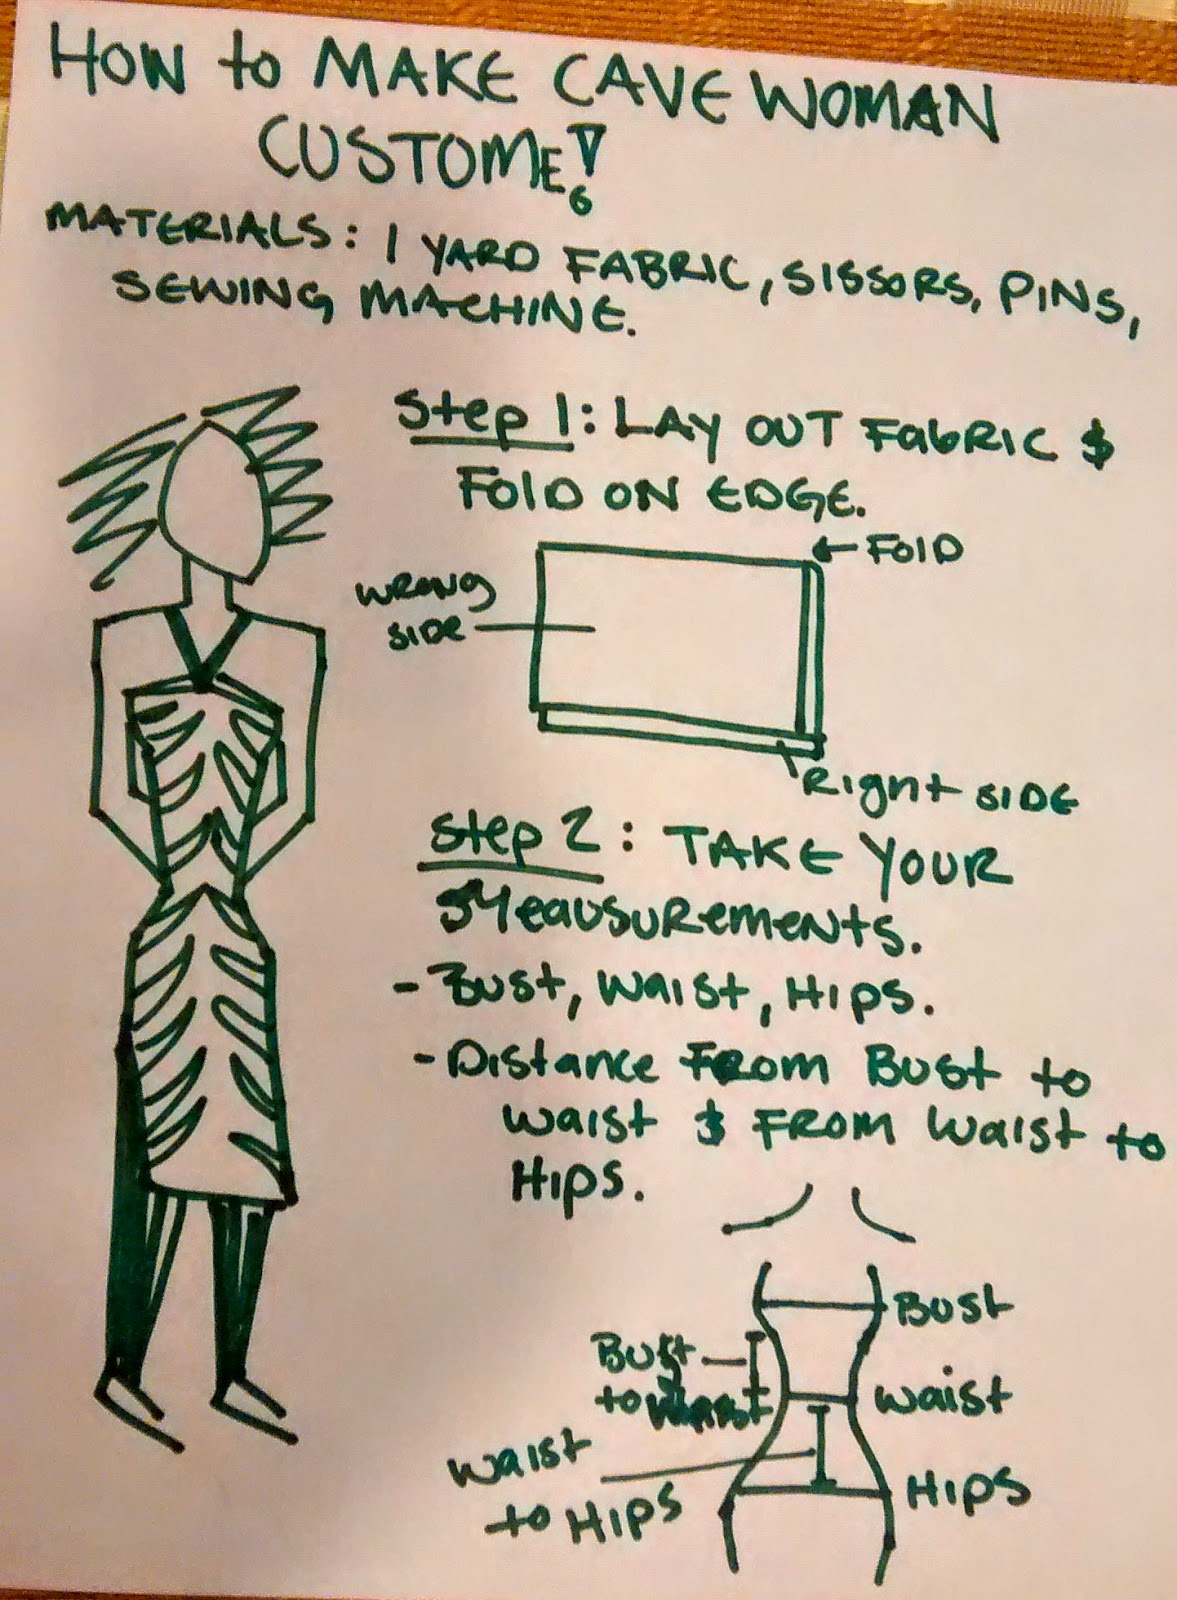 HOW to MAKE CAVE WOMAN
CUSTOME!
MATERIALS: 1 YARD FABRIC, SISSORS, PINS,
SEWING MACHINE.
Step 1: LAY OUT FABRIC &
FOLD ON EDGE.
FOLD
WRONG
SIDE
Right SIDE
Step 2: TAKE YOUR
Meausurements.
- Bust, Waist, Hips.
- Distance From Bust to
Waist & From Waist to
Hips.
Bust
Bust
to Waist
Waist
Waist
to Hips
Hips